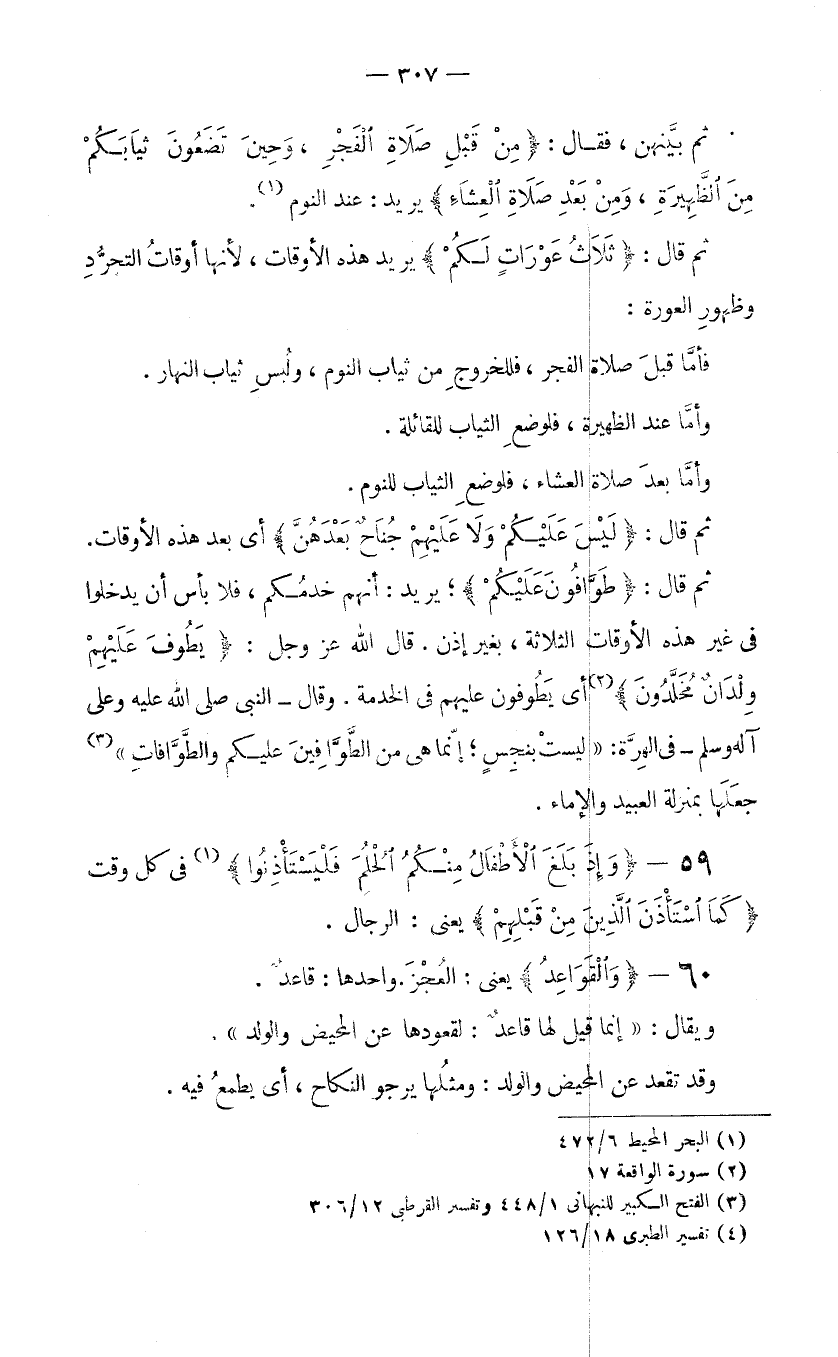 — ٣٠٧ —
ثم بيَّنهن ، فقـال : ﴿ مِنْ قَبْلِ صَلَاةِ ٱلْفَجْرِ ، وَحِينَ تَضَعُونَ ثِيَابَـكُمْ
مِنَ ٱلظَّهِيرَةِ ، وَمِنْ بَعْدِ صَلَاةِ ٱلْعِشَاءِ ﴾ يريد : عند النوم (١).
ثم قال : ﴿ ثَلَاثُ عَوْرَاتٍ لَـكُمْ ﴾ يريد هذه الأوقات ، لأنها أوقاتُ التجرُّدِ
وظهورِ العورة :
فأمَّا قبلَ صلاة الفجر ، فللخروجِ من ثياب النوم ، ولُبسِ ثياب النهار .
وأمَّا عند الظهيرة ، فلوضعِ الثياب للقائلة .
وأمَّا بعدَ صلاة العشاء ، فلوضعِ الثياب للنوم .
ثم قال : ﴿ لَيْسَ عَلَيْـكُمْ وَلَا عَلَيْهِمْ جُنَاحٌ بَعْدَهُنَّ ﴾ أى بعد هذه الأوقات.
ثم قال : ﴿ طَوَّافُونَ عَلَيْكُمْ ﴾ ؛ يريد : أنهم خدمُـكم ، فلا بأس أن يدخلوا
فى غير هذه الأوقات الثلاثة ، بغير إذن . قال الله عز وجل : ﴿ يَطُوفُ عَلَيْهِمْ
وِلْدَانٌ مُخَلَّدُونَ ﴾(٢) أى يَطُوفون عليهم فى الخدمة . وقال ــ النبى صلى الله عليه وعلى
آله وسلم ــ فى الهِرَّة: « ليستْ بنجِسٍ ؛ إنّما هى من الطَّوَّافِينَ عليـكم والطَّوَّافاتِ »(٣)
جعَلَها بمنزلة العبيد والإماء .
٥٩ — ﴿ وَإِذَا بَلَغَ ٱلْأَطْفَالُ مِنْـكُمُ ٱلْحُلُمَ فَلْيَسْتَأْذِنُوا ﴾ (١) فى كل وقت
﴿ كَمَا ٱسْتَأْذَنَ ٱلَّذِينَ مِنْ قَبْلِهِمْ ﴾ يعنى : الرجال .
٦٠ — ﴿ وَٱلْقَوَاعِدُ ﴾ يعنى : العُجْزَ. واحدها : قاعدٌ .
ويقال : « إنما قيل لها قاعدٌ : لقعودها عن المحيض والولد » .
وقد تقعد عن المحيض والولد : ومثلُها يرجو النكاح ، أى يطمعُ فيه .
(١) البحر المحيط ٤٧٢/٦
(٢) سورة الواقعة ١٧
(٣) الفتح الـكبير للنبهانى ٤٤٨/١ وتفسير القرطبى ٣٠٦/١٢
(٤) تفسير الطبرى ١٢٦/١٨